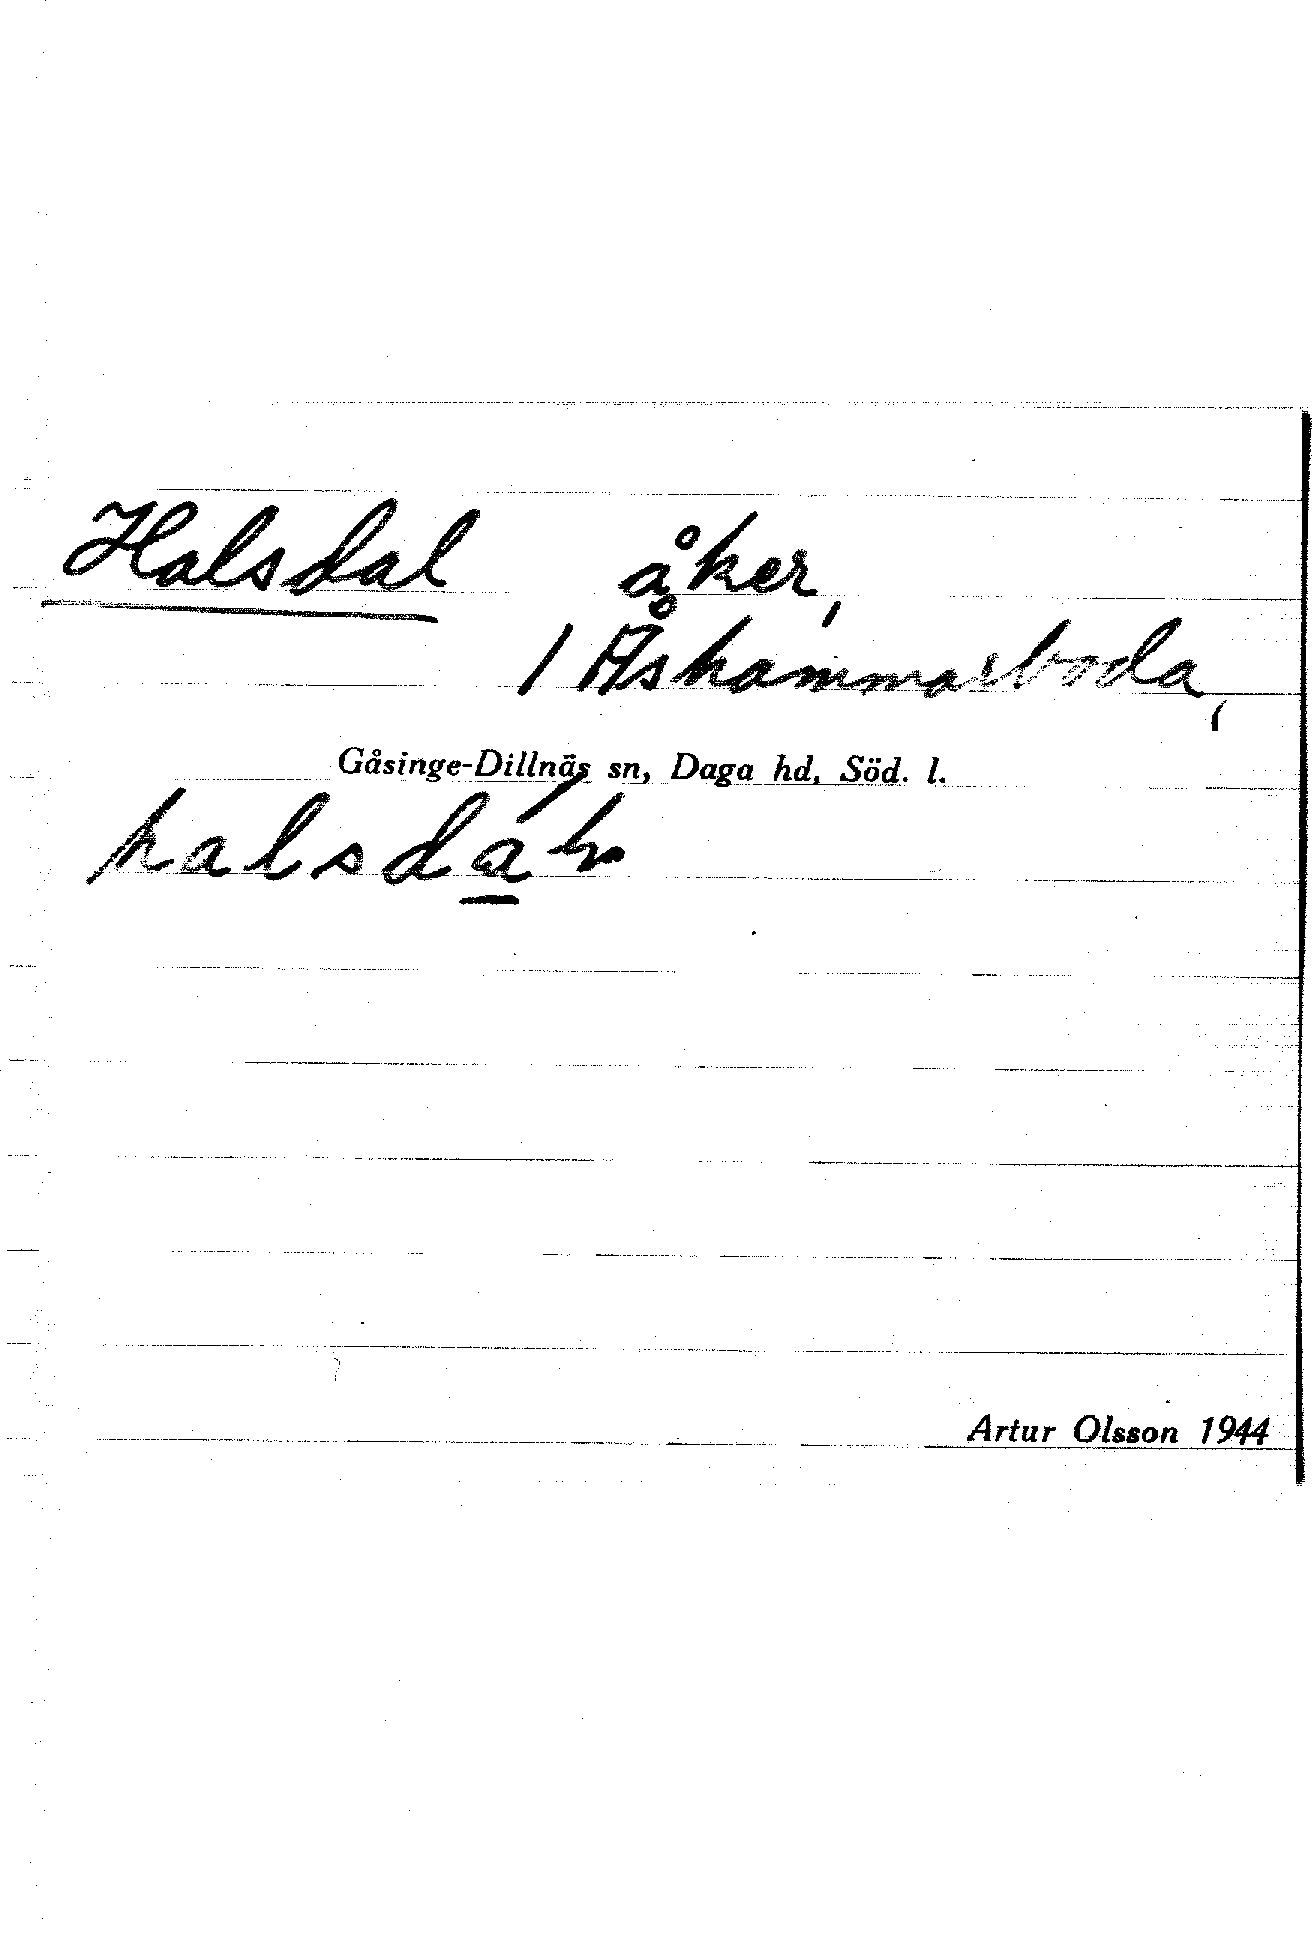 Halsdal åker,
/ Åshammarboda,
Gåsinge-Dillnäs sn, Daga hd, Söd. l.
Artur Olsson 1944